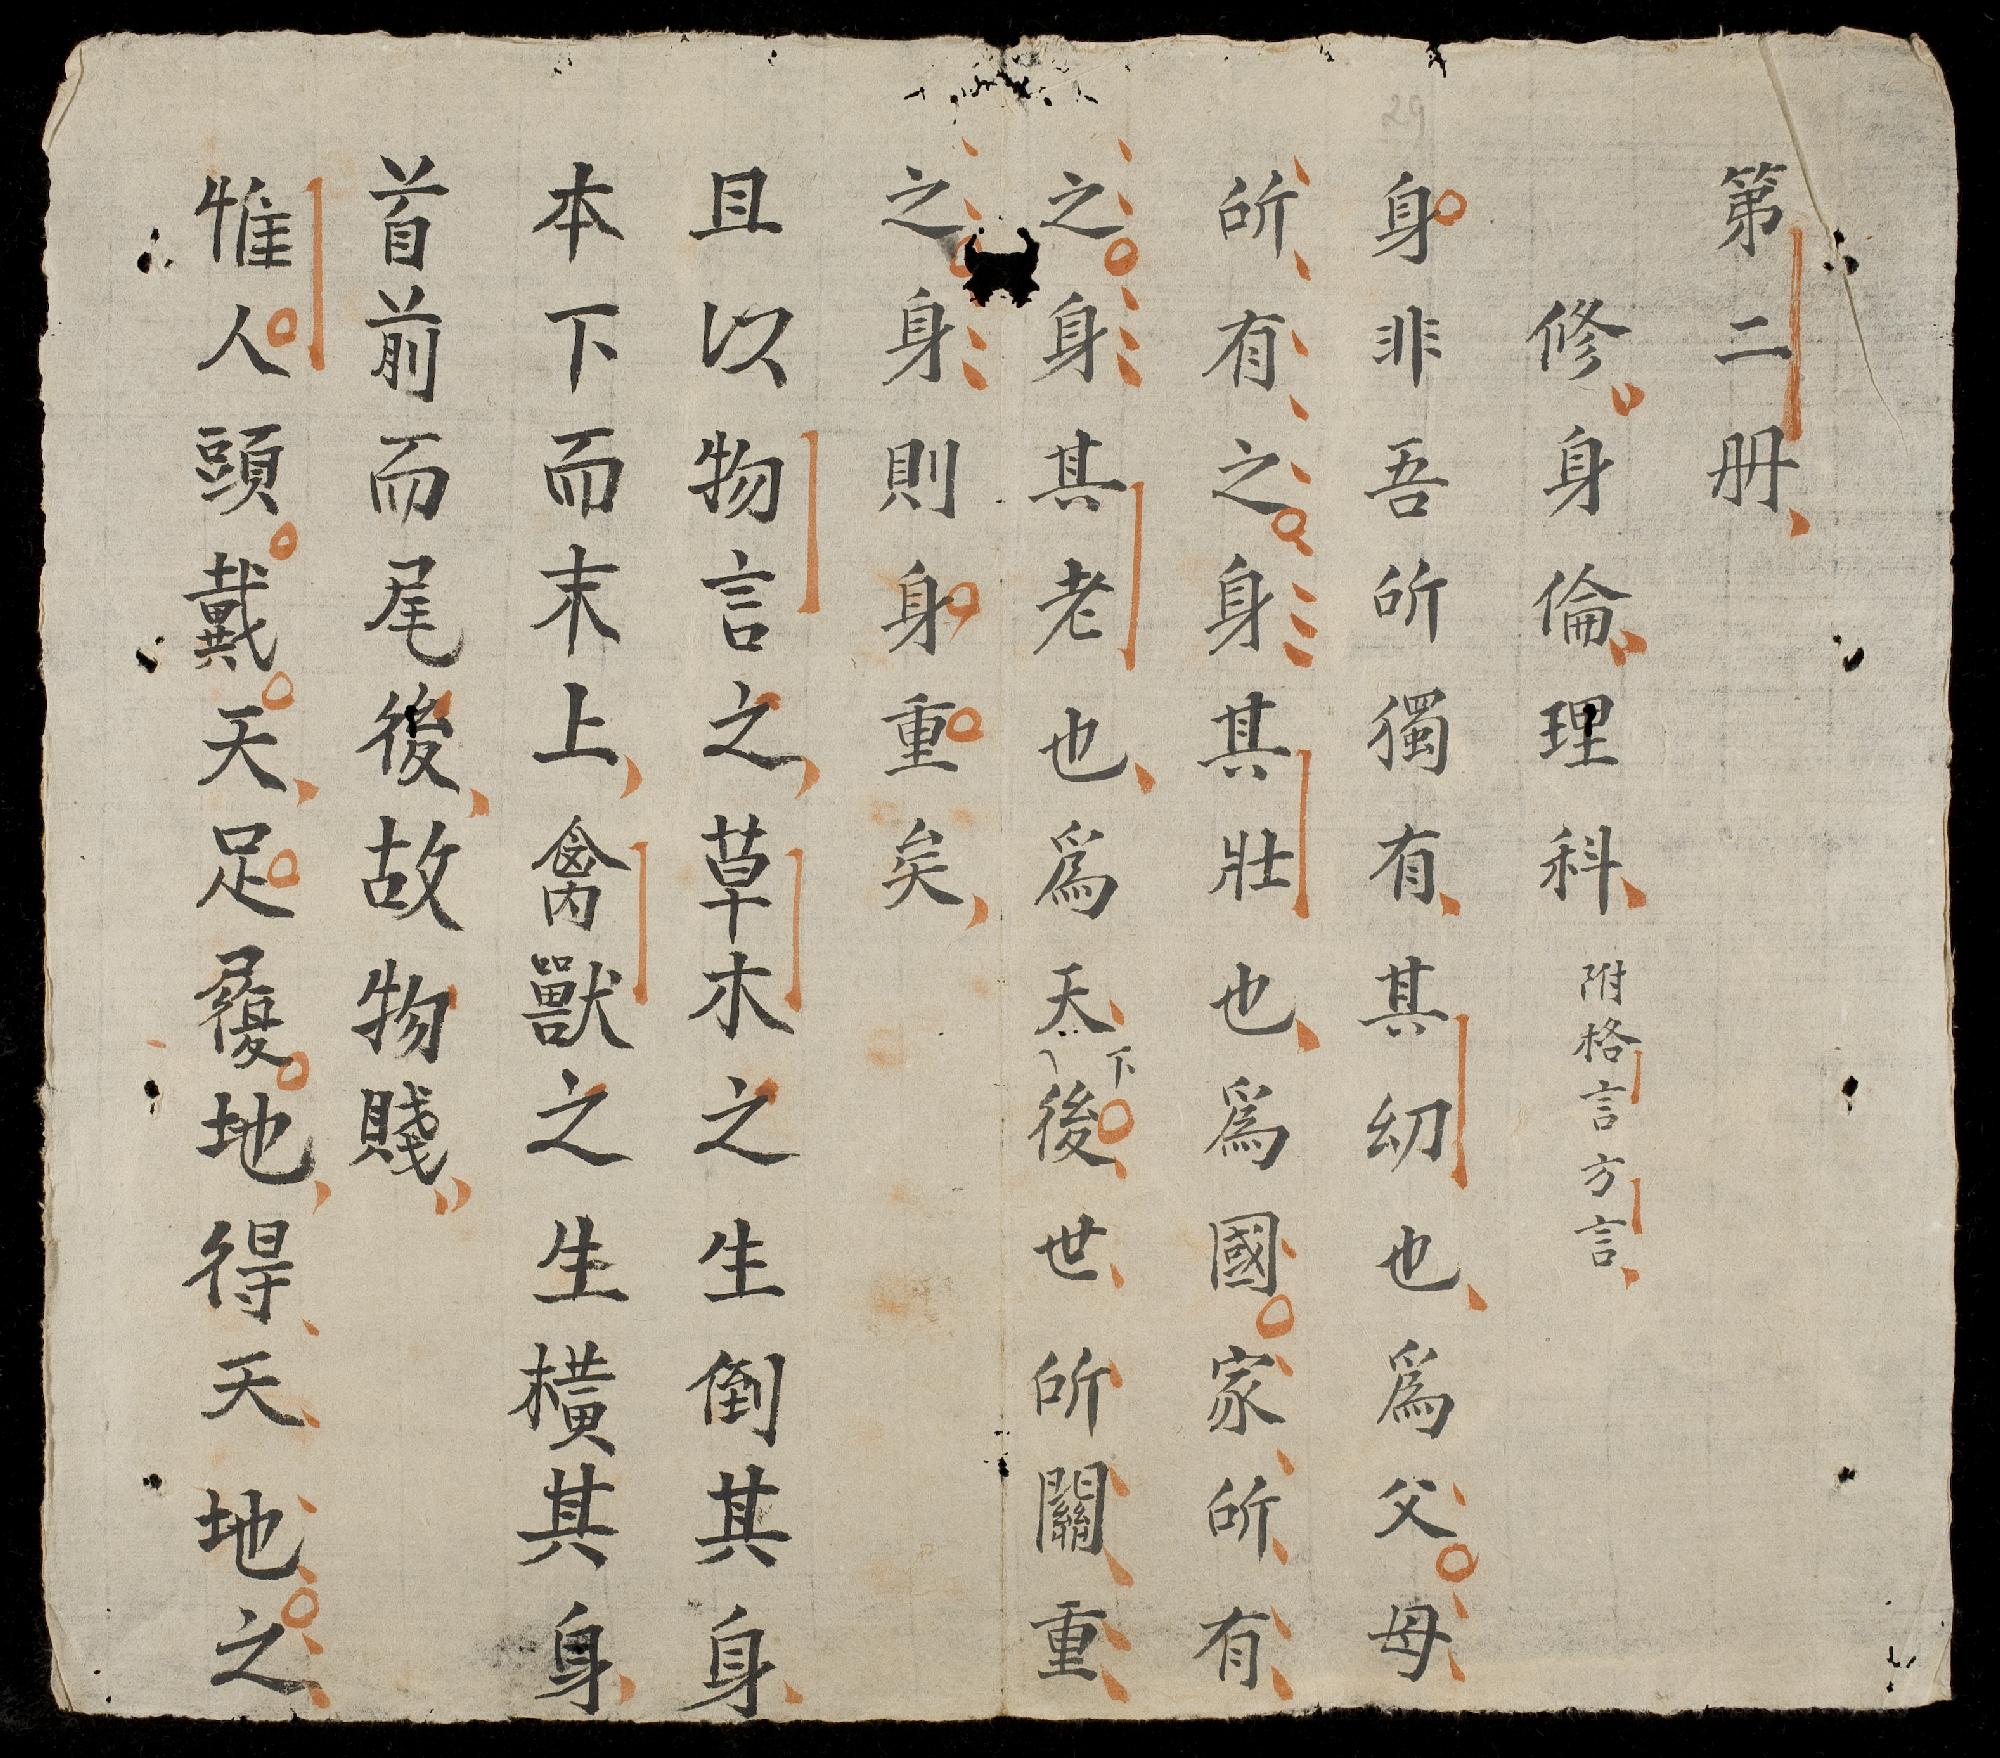 第二册
修身倫理科 附格言方言
身非吾所獨有其幼也為父母
所有之身其壯也為國家所有
之身其老也為天下後世所關重
之身則身重矣
且以物言之草木之生倒其身
本下而末上禽獸之生橫其身
首前而尾後故物賤
惟人頭戴天足履地得天地之
29